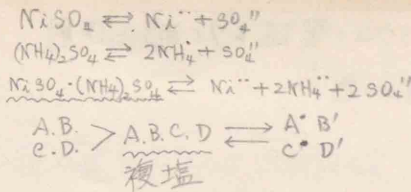 NiSO₄ ⇄ Ni¨ + SO₄″
(NH₄)₂SO₄ ⇄ 2NH₄˙ + SO₄″
NiSO₄·(NH₄)₂SO₄ ⇄ Ni¨ + 2NH₄¨ + 2SO₄″
A.B. > A.B.C.D ⇄ A˙ B′
C.D. C˙ D′
複塩